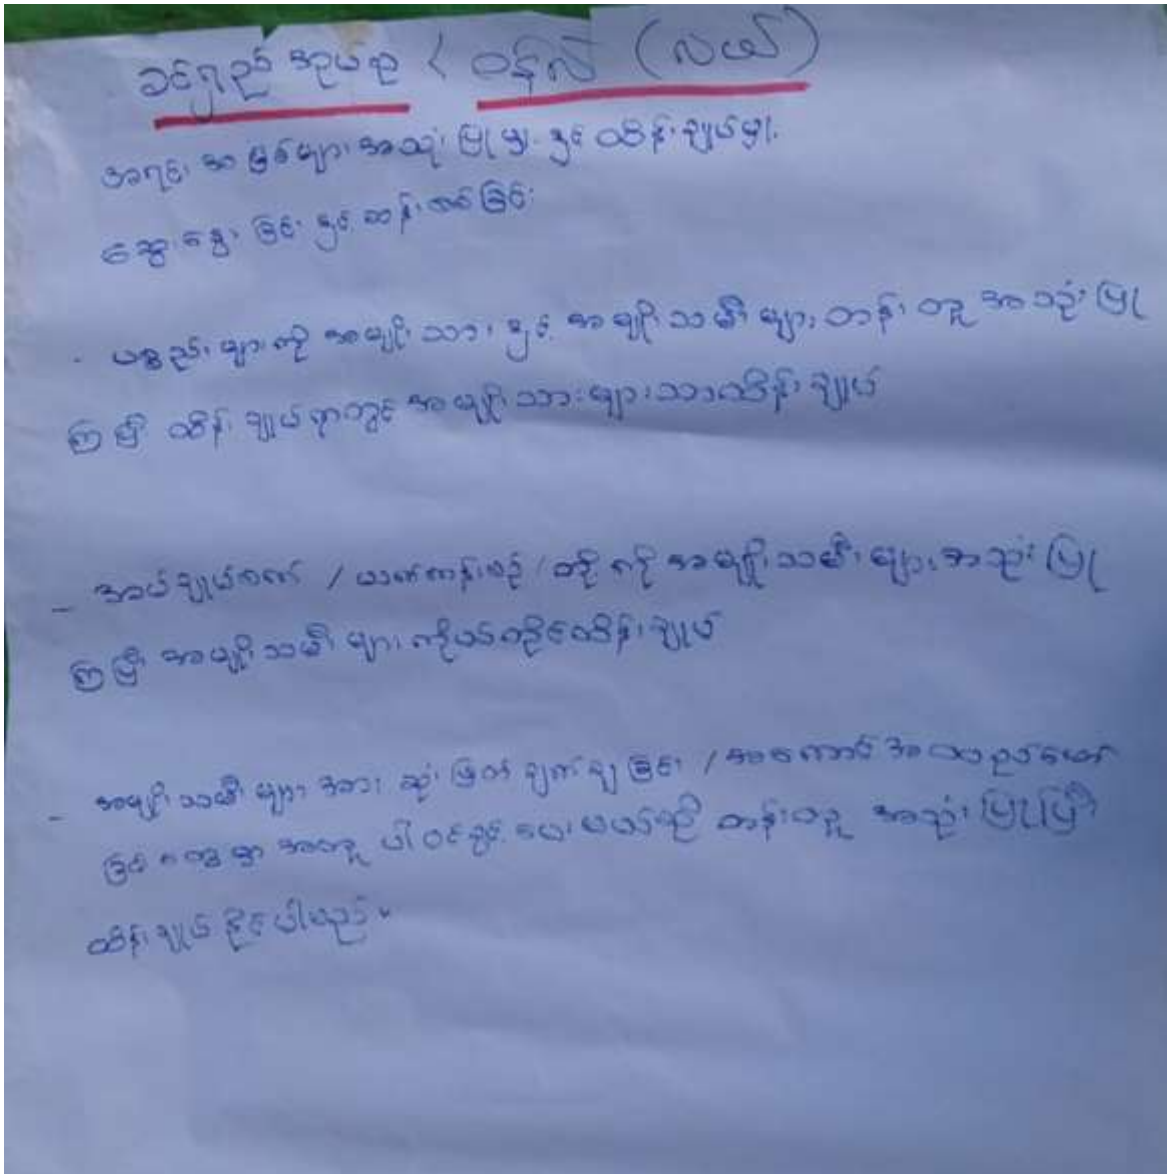 ခင်ရည် အုပ်စု < ဝန်လိ (လယ်)
အရင်းအမြစ်များ အသုံးပြုမှု နှင့် ထိန်းချုပ်မှု
ဆွေးနွေးခြင်း နှင့် ဆန်းစစ်ခြင်း
· ပစ္စည်းများကို အမျိုးသား နှင့် အမျိုးသမီးများ တန်းတူ အသုံးပြု
ကြပြီး ထိန်းချုပ်ရာတွင် အမျိုးသားများသာ ထိန်းချုပ်
- အပ်ချုပ်စက် / ယက်ကန်းစင် / တို့ကို အမျိုးသမီးများ အသုံးပြု
ကြပြီး အမျိုးသမီးများ ကိုယ်တိုင်ထိန်းချုပ်
- အမျိုးသမီးများ အား ဆုံးဖြတ်ချက်ချခြင်း / အကောင်အထည်ဖော်
ခြင်းတွေမှာ အတူ ပါဝင်ခွင့်ပေးမယ်ဆို တန်းတူ အသုံးပြုပြီး
ထိန်းချုပ်နိုင်ပါမည်။